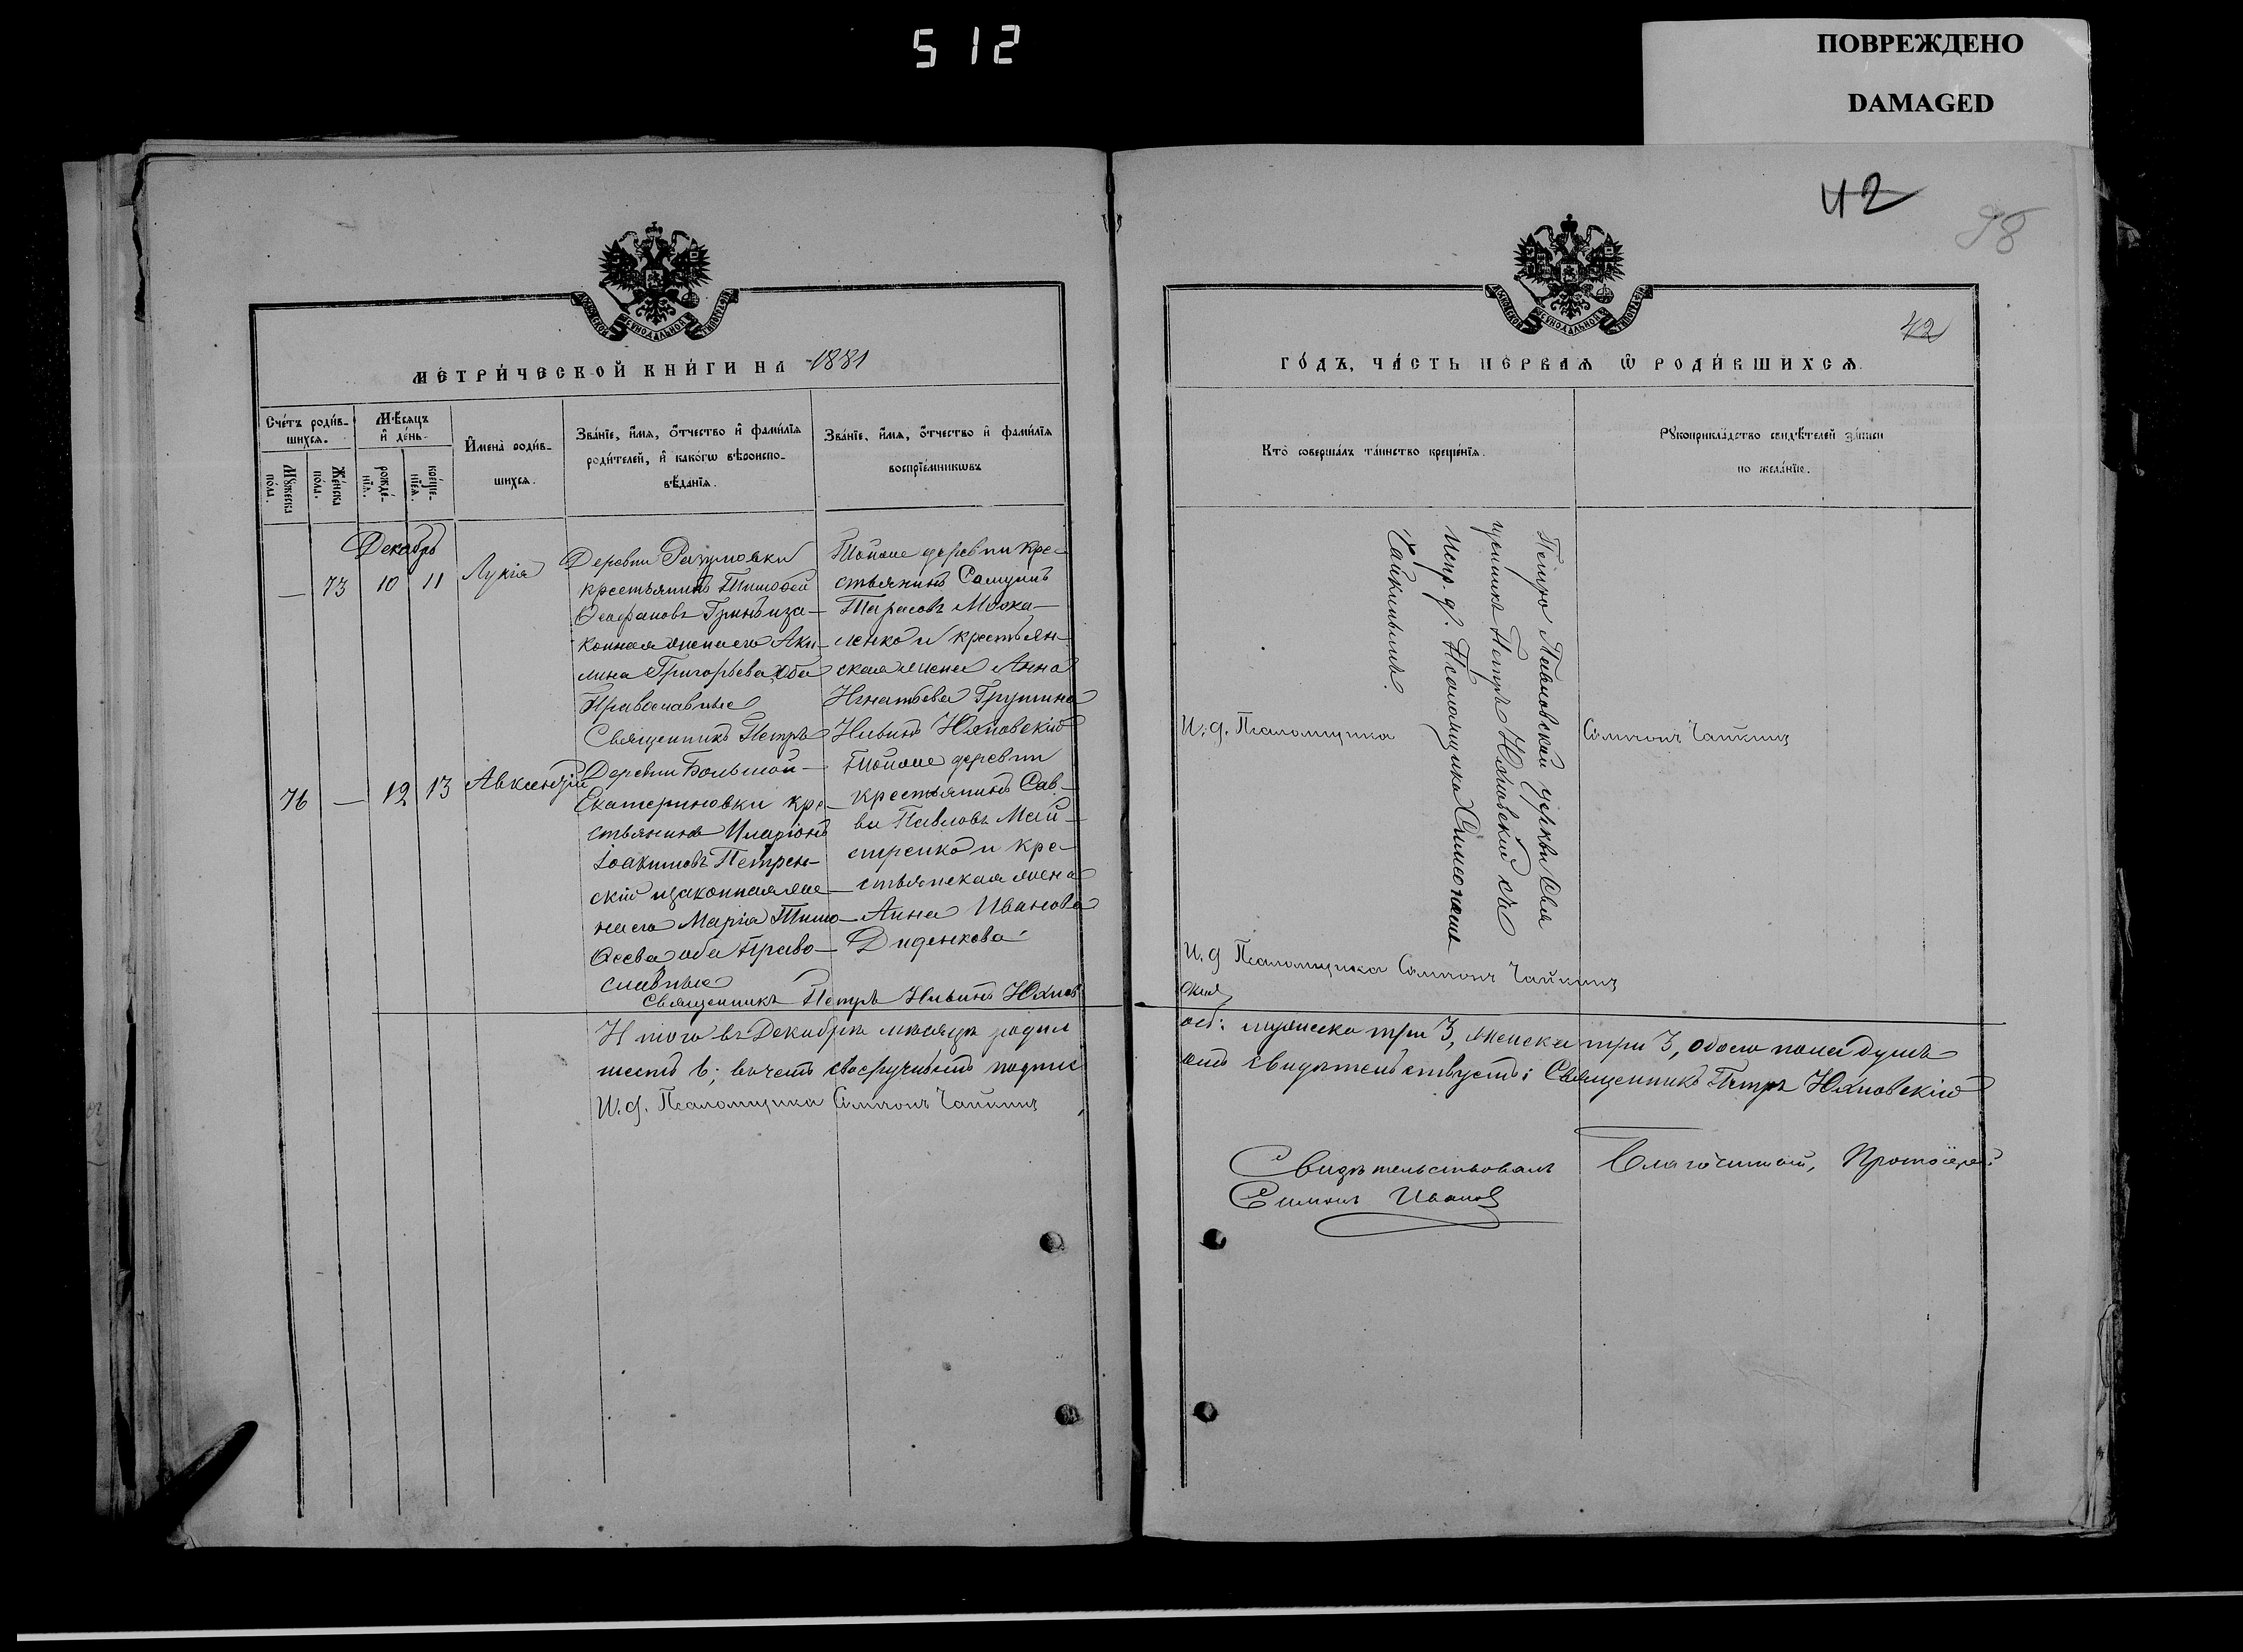 512
ПОВРЕЖДЕНО
DAMAGED
42
98
МЕТРИ́ЧЕСКОЙ КНИ́ГИ НА 1881
ГО́ДЪ, ЧА́СТЬ ПЕ́РВАЯ Ѡ РОДИ́ВШИХСЯ.
42
Сче́тъ роди́в-
шихся.
Му́жеска по́ла.
Же́нска по́ла.
Мѣ́сяцъ и де́нь.
рожде́-
нія.
креще́-
нія.
Имена̀ роди́в-
шихся.
Зва́ніе, и́мя, о́тчество и фами́лія
роди́телей, и како́гѡ вѣроиспо-
вѣ́данія.
Зва́ніе, и́мя, о́тчество и фами́лія
воспріе́мникѡвъ
Кто̀ соверша́лъ та́инство креще́нія.
Рукоприкла́дство свидѣ́телей за́писи
по жела́нію.
Декабрь
— 73 10 11 Лукія
Деревни Разумовки
крестьянинъ Тимофей
Ѳеофановъ Гринь и за-
конная жена его Аки-
лина Григорьева, оба
Православные
Тойже деревни кре-
стьянинъ Самуилъ
Тарасовъ Моска-
ленко и крестьян-
ская жена Анна
Игнатьева
Священникъ Петръ Юхновскій
И. д. Псаломщика Симеонъ Чайкинъ
76 — 12 13 Авксентій
Деревни Большой
Екатериновки кре-
стьянинъ Иларіонъ
Іоакимовъ Петрен-
скій и законная же-
на его Марія Тимо-
ѳеева оба Право-
славные
Тойже деревни
крестьянинъ Сав-
ва Павловъ Май-
стренко и кре-
стьянская жена
Анна Иванова
Диденкова
Петро Павловской церкви Свя
щенникъ Петръ Юхновскій съ
испр. д. Псаломщика Симеономъ
Чайкинымъ.
Священникъ Петръ Юхнов
скій
И. д. Псаломщика Симеонъ Чайкинъ
Итого въ Декабрѣ мѣсяцѣ родил
ось: мужска три 3, женска три 3, обоего пола душъ
шесть 6; въ чемъ своеручнымъ подпис
омъ свидѣтельствуемъ: Священникъ Петръ Юхновскій
И. д. Псаломщика Симеонъ Чайкинъ
Свидѣтельствовалъ Благочинный, Протоіерей
Симеонъ Ивановъ